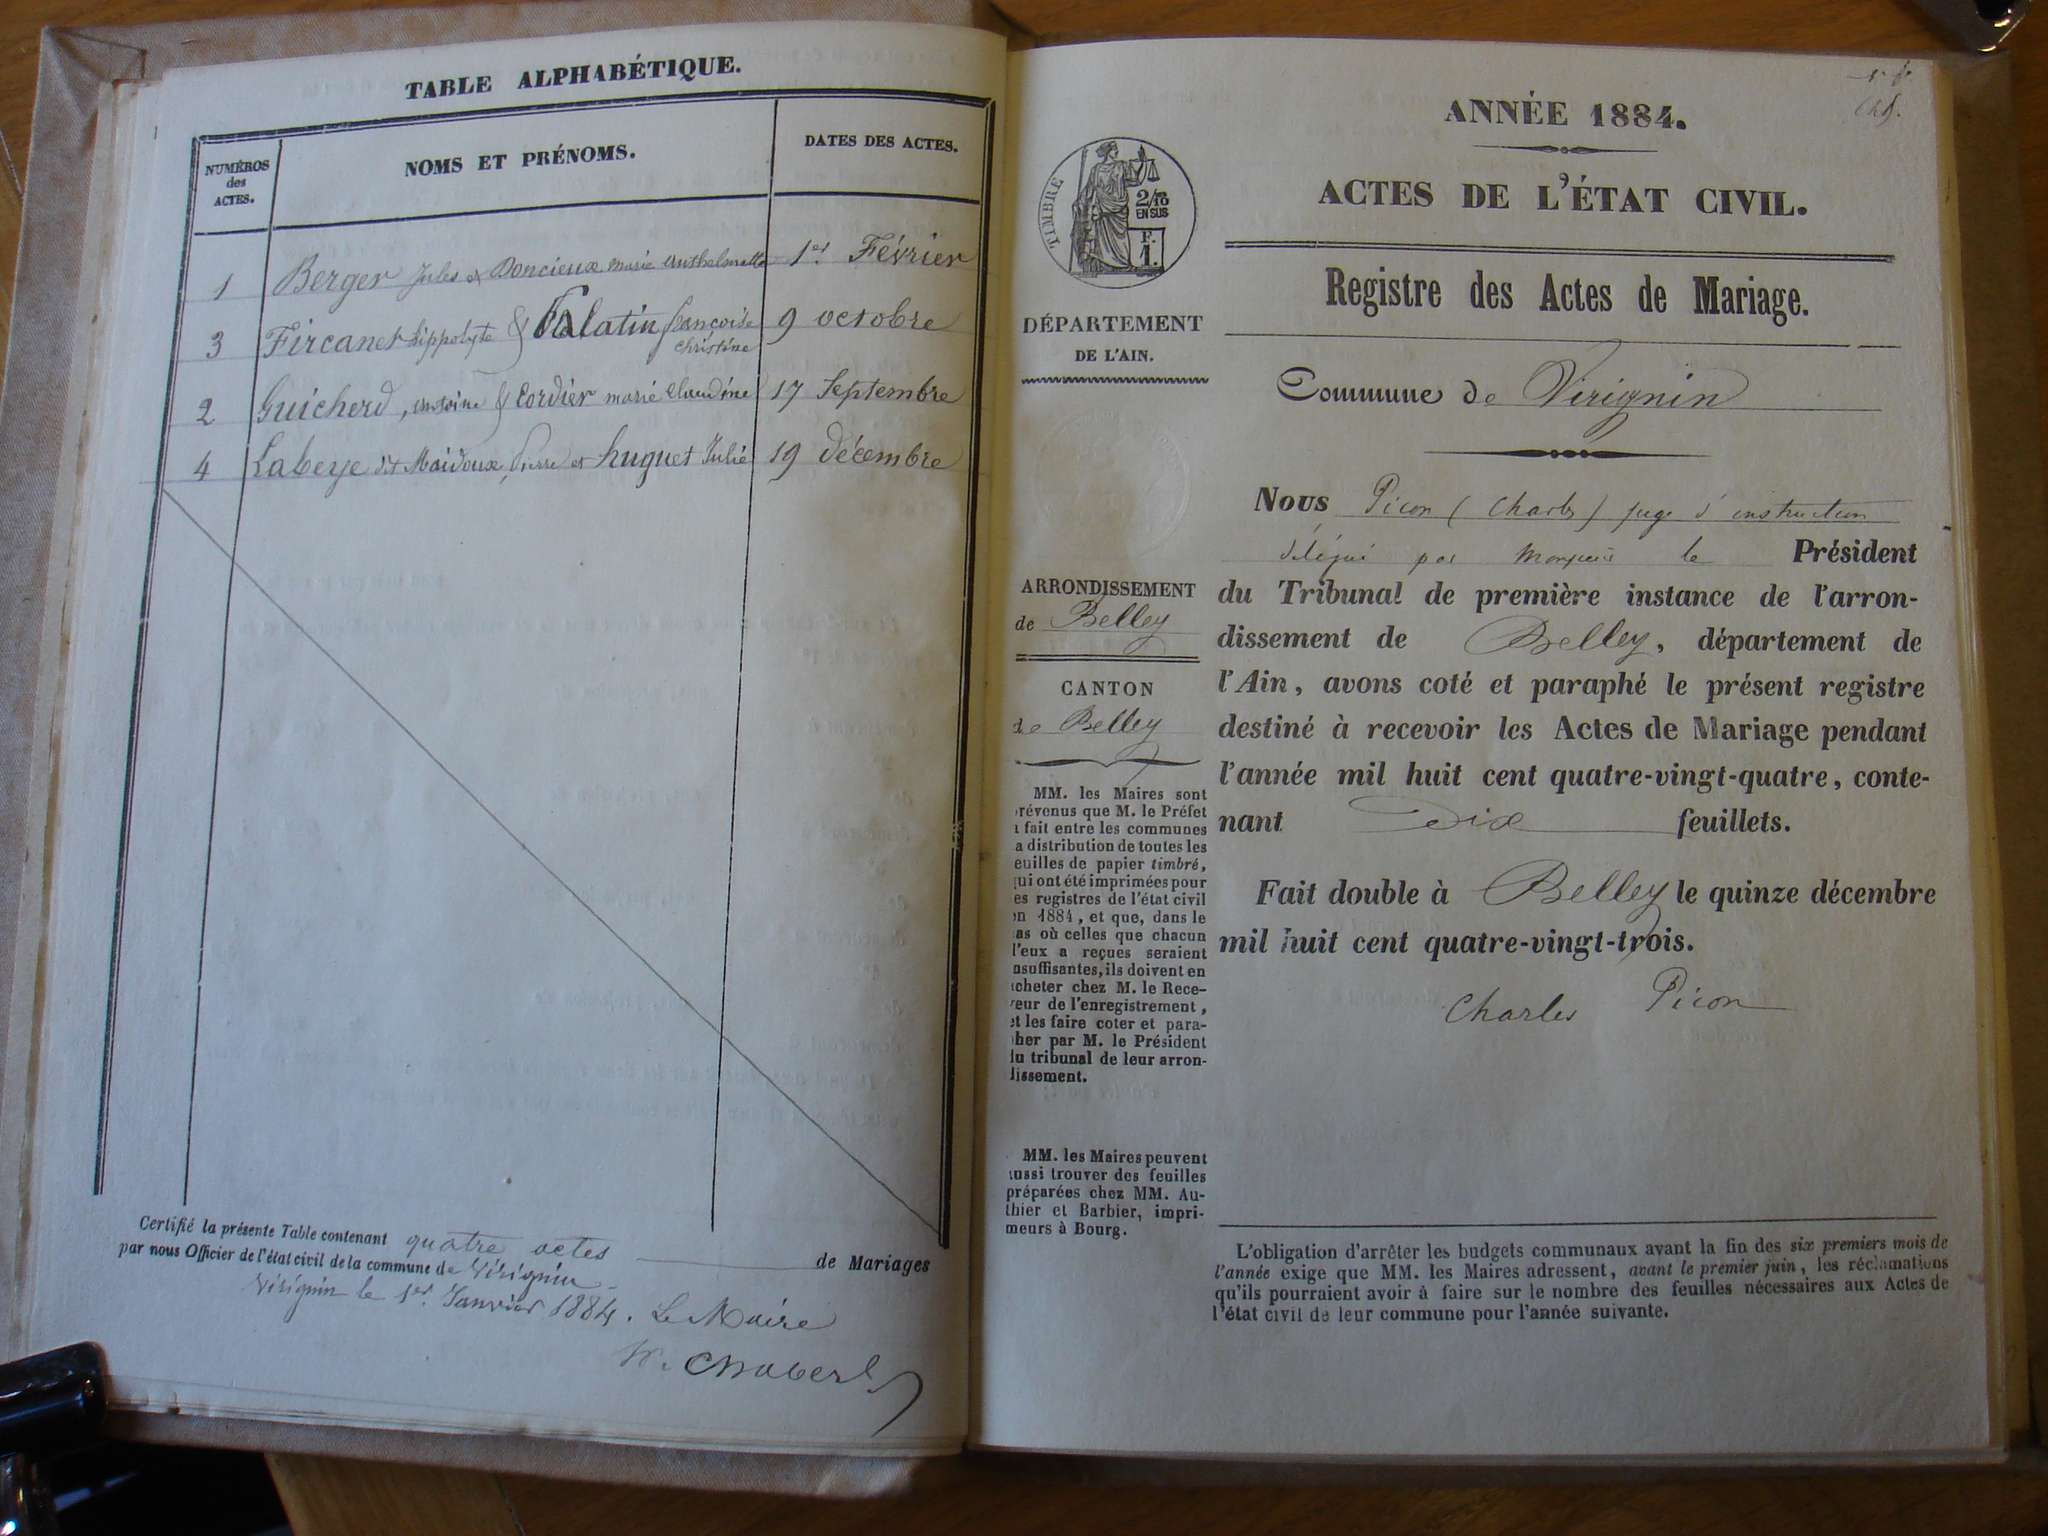 TABLE ALPHABÉTIQUE.
NUMÉROS
des
ACTES.
NOMS ET PRÉNOMS.
DATES DES ACTES.
1 Berger Jules et Doncieux marie Anthelmette 1er Février
3 Fircanet hippolyte & Falatin françoise christine 9 octobre
2 Guicherd, antoine & Cordier marie Claudine 17 Septembre
4 Labeye dit Maidoux, Pierre et huguet Julie 19 décembre
Certifié la présente Table contenant quatre actes de Mariages
par nous Officier de l'état civil de la commune de Virignin
Virignin le 1er Janvier 1884. Le Maire
ANNÉE 1884.
ACTES DE L'ÉTAT CIVIL.
TIMBRE
2/10
EN SUS
F.
1.
Registre des Actes de Mariage.
DÉPARTEMENT
DE L'AIN.
Commune de Virignin
Nous Picon (Charles) juge d'instruction
délégué par Monsieur le Président
du Tribunal de première instance de l'arron-
dissement de Belley, département de
l'Ain, avons coté et paraphé le présent registre
destiné à recevoir les Actes de Mariage pendant
l'année mil huit cent quatre-vingt-quatre, conte-
nant Dix feuillets.
Fait double à Belley le quinze décembre
mil huit cent quatre-vingt-trois.
Charles Picon
ARRONDISSEMENT
de Belley
CANTON
de Belley
MM. les Maires sont
révenus que M. le Préfet
fait entre les communes
a distribution de toutes les
euilles de papier timbré,
qui ont été imprimées pour
es registres de l'état civil
en 1884, et que, dans le
as où celles que chacun
l'eux a reçues seraient
nsuffisantes, ils doivent en
acheter chez M. le Rece-
veur de l'enregistrement,
et les faire coter et para-
pher par M. le Président
du tribunal de leur arron-
dissement.
MM. les Maires peuvent
aussi trouver des feuilles
préparées chez MM. Au-
thier et Barbier, impri-
meurs à Bourg.
L'obligation d'arrêter les budgets communaux avant la fin des six premiers mois de
l'année exige que MM. les Maires adressent, avant le premier juin, les réclamations
qu'ils pourraient avoir à faire sur le nombre des feuilles nécessaires aux Actes de
l'état civil de leur commune pour l'année suivante.